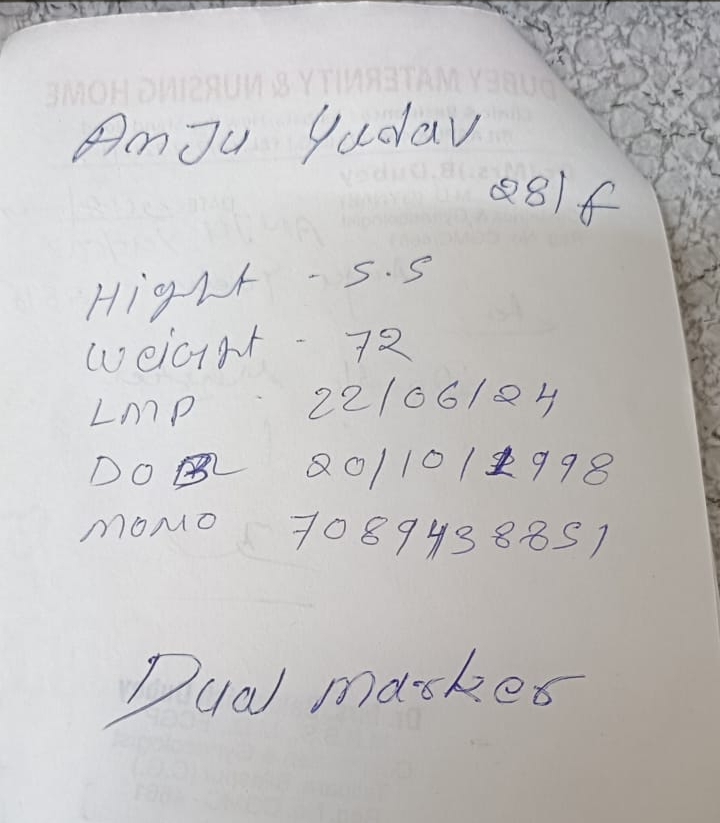 Anju Yadav
28/f
Hight - 5.5
Weight - 72
LMP - 22/06/24
DOB 20/10/1998
MONO 7089438851
Dual marker